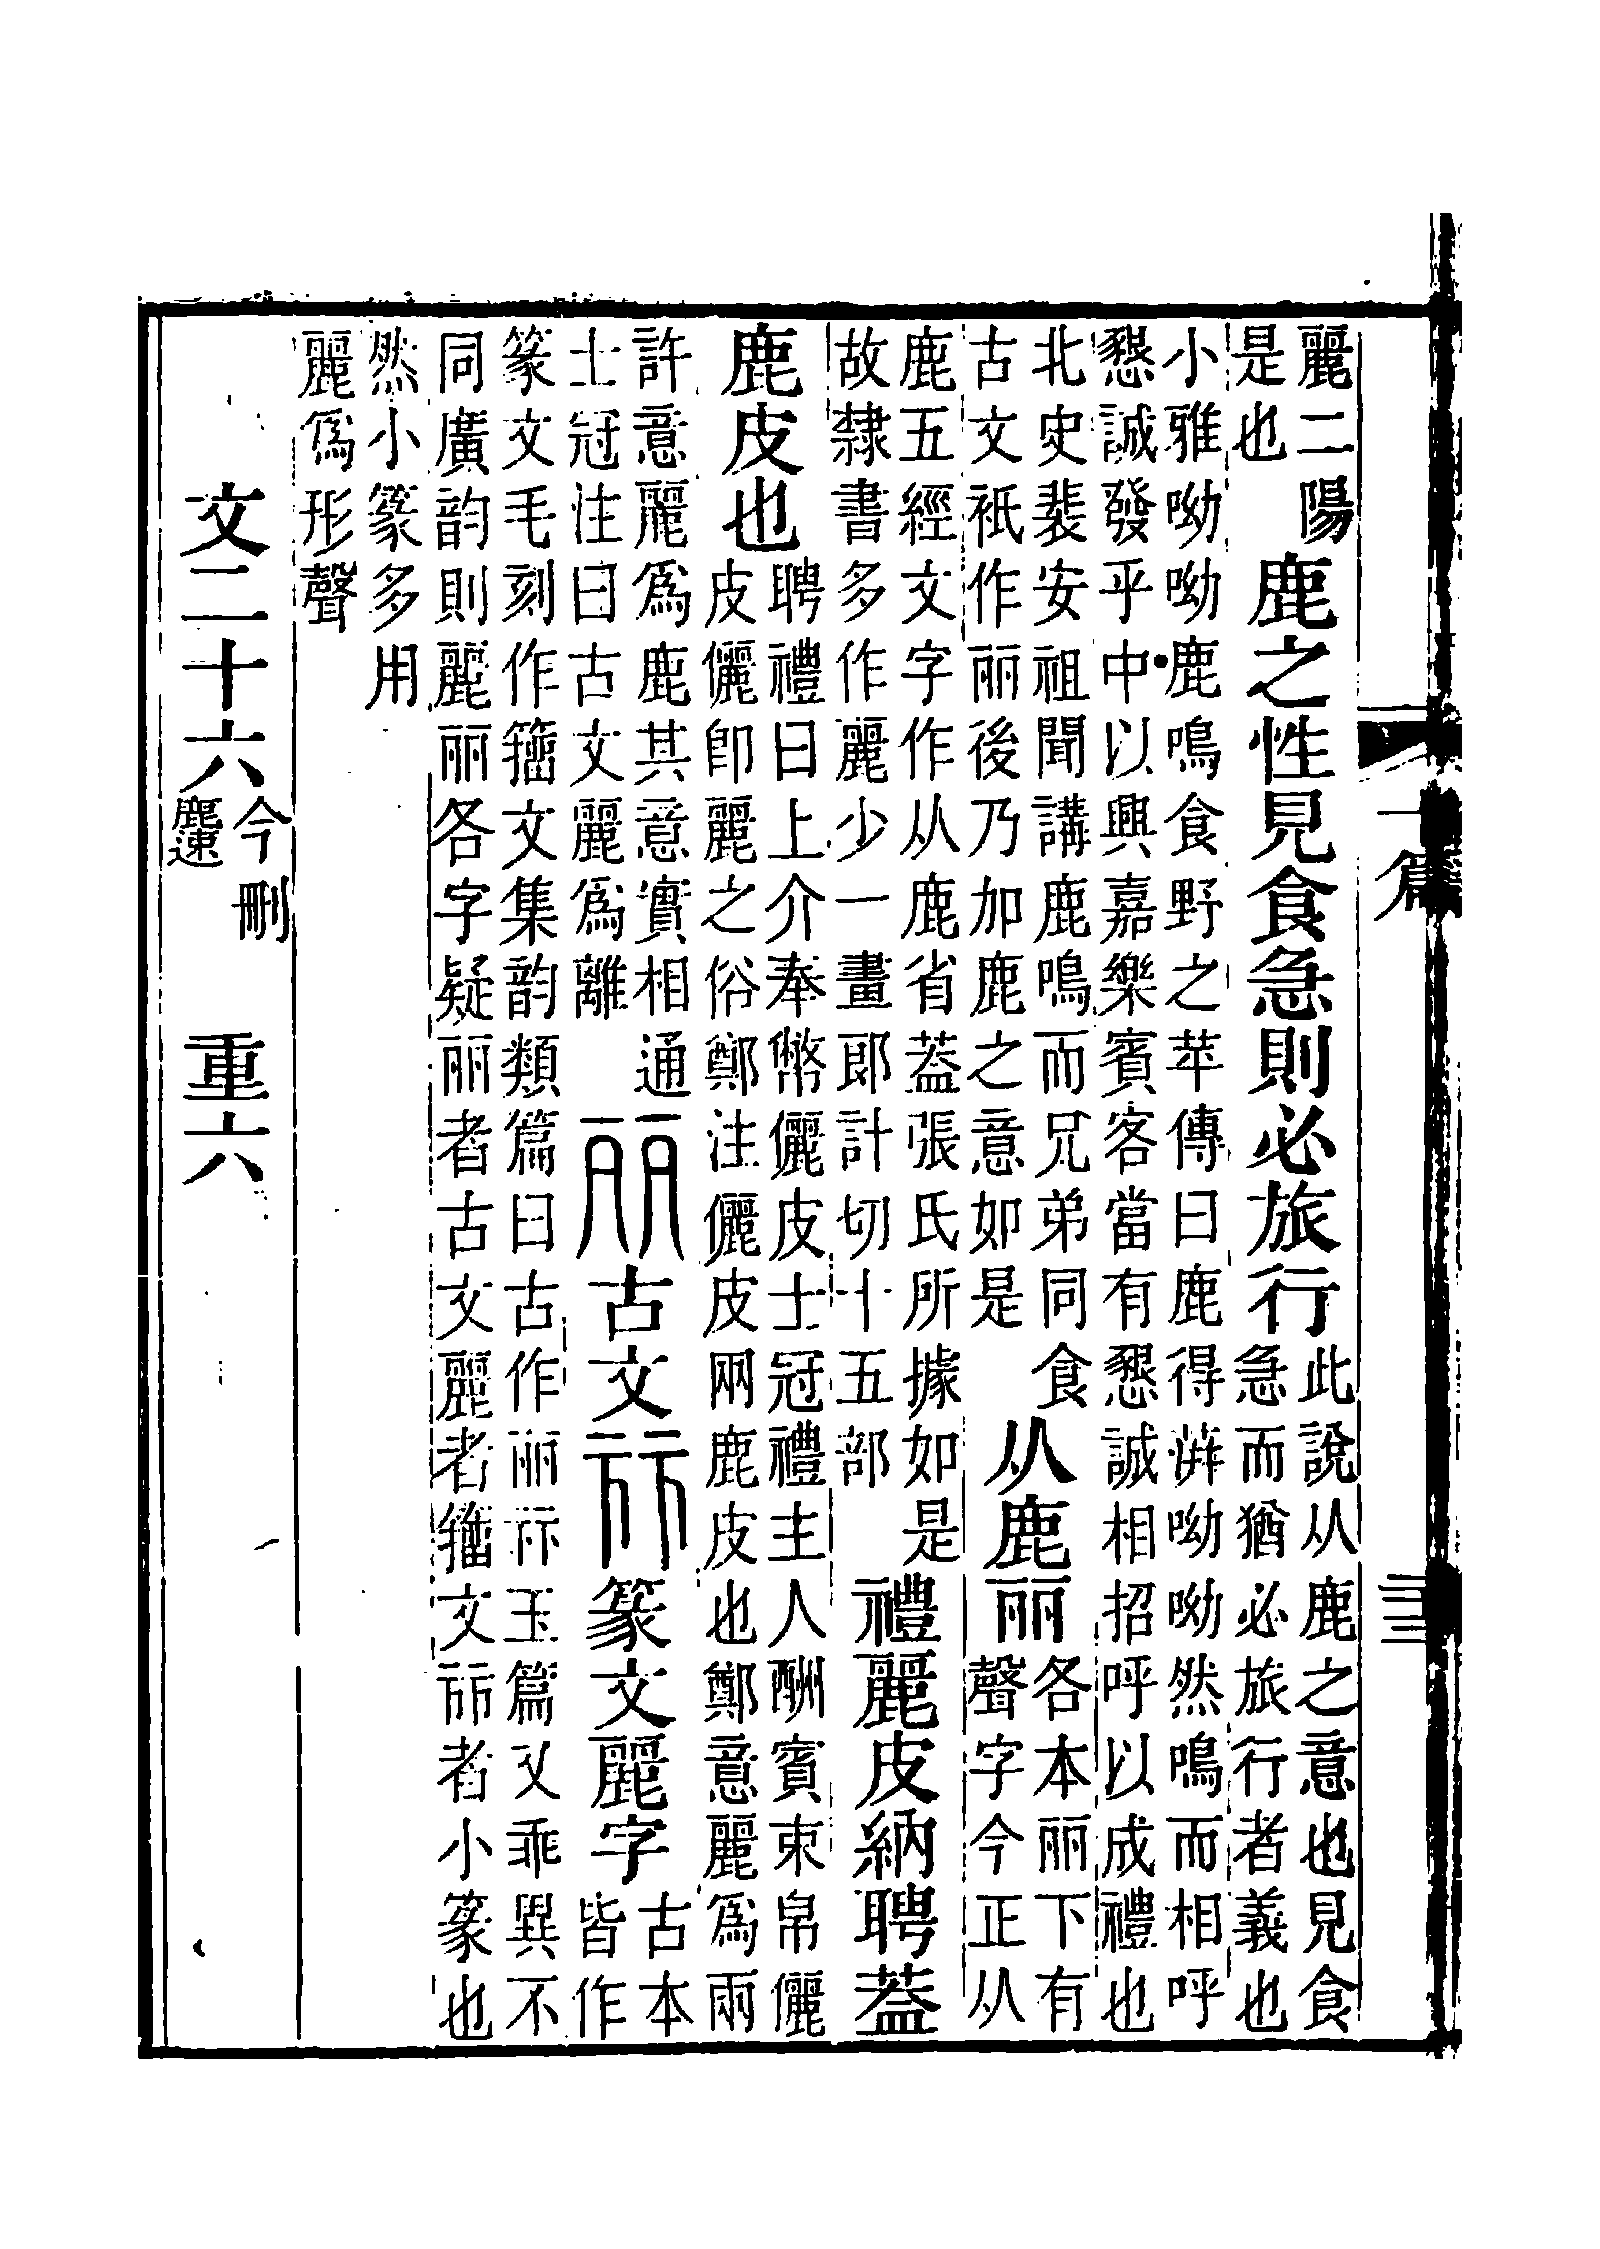 十篇
麗二陽是也鹿之性見食急則必旅行此說从鹿之意也見食急而猶必旅行者義也
小雅呦呦鹿鳴食野之苹傳曰鹿得蓱呦呦然鳴而相呼懇誠發乎中以興嘉樂賓客當有懇誠相招呼以成禮也
北史裴安祖聞講鹿鳴而兄弟同食古文祇作丽後乃加鹿之意如是从鹿丽各本丽下有聲字今正从
鹿五經文字作从鹿省蓋張氏所據如是故隸書多作麗少一畫郎計切十五部禮麗皮納聘蓋
鹿皮也聘禮曰上介奉幣儷皮士冠禮主人酬賓束帛儷皮儷卽麗之俗鄭注儷皮兩鹿皮也鄭意麗爲兩
許意麗爲鹿其意實相通士冠注曰古文麗爲離丽古文篆文麗字古本皆作
篆文毛刻作籒文集韵類篇曰古作丽玉篇又乖異不同廣韵則麗丽各字疑丽者古文麗者籒文者小篆也
然小篆多用麗爲形聲
文二十六今刪重六